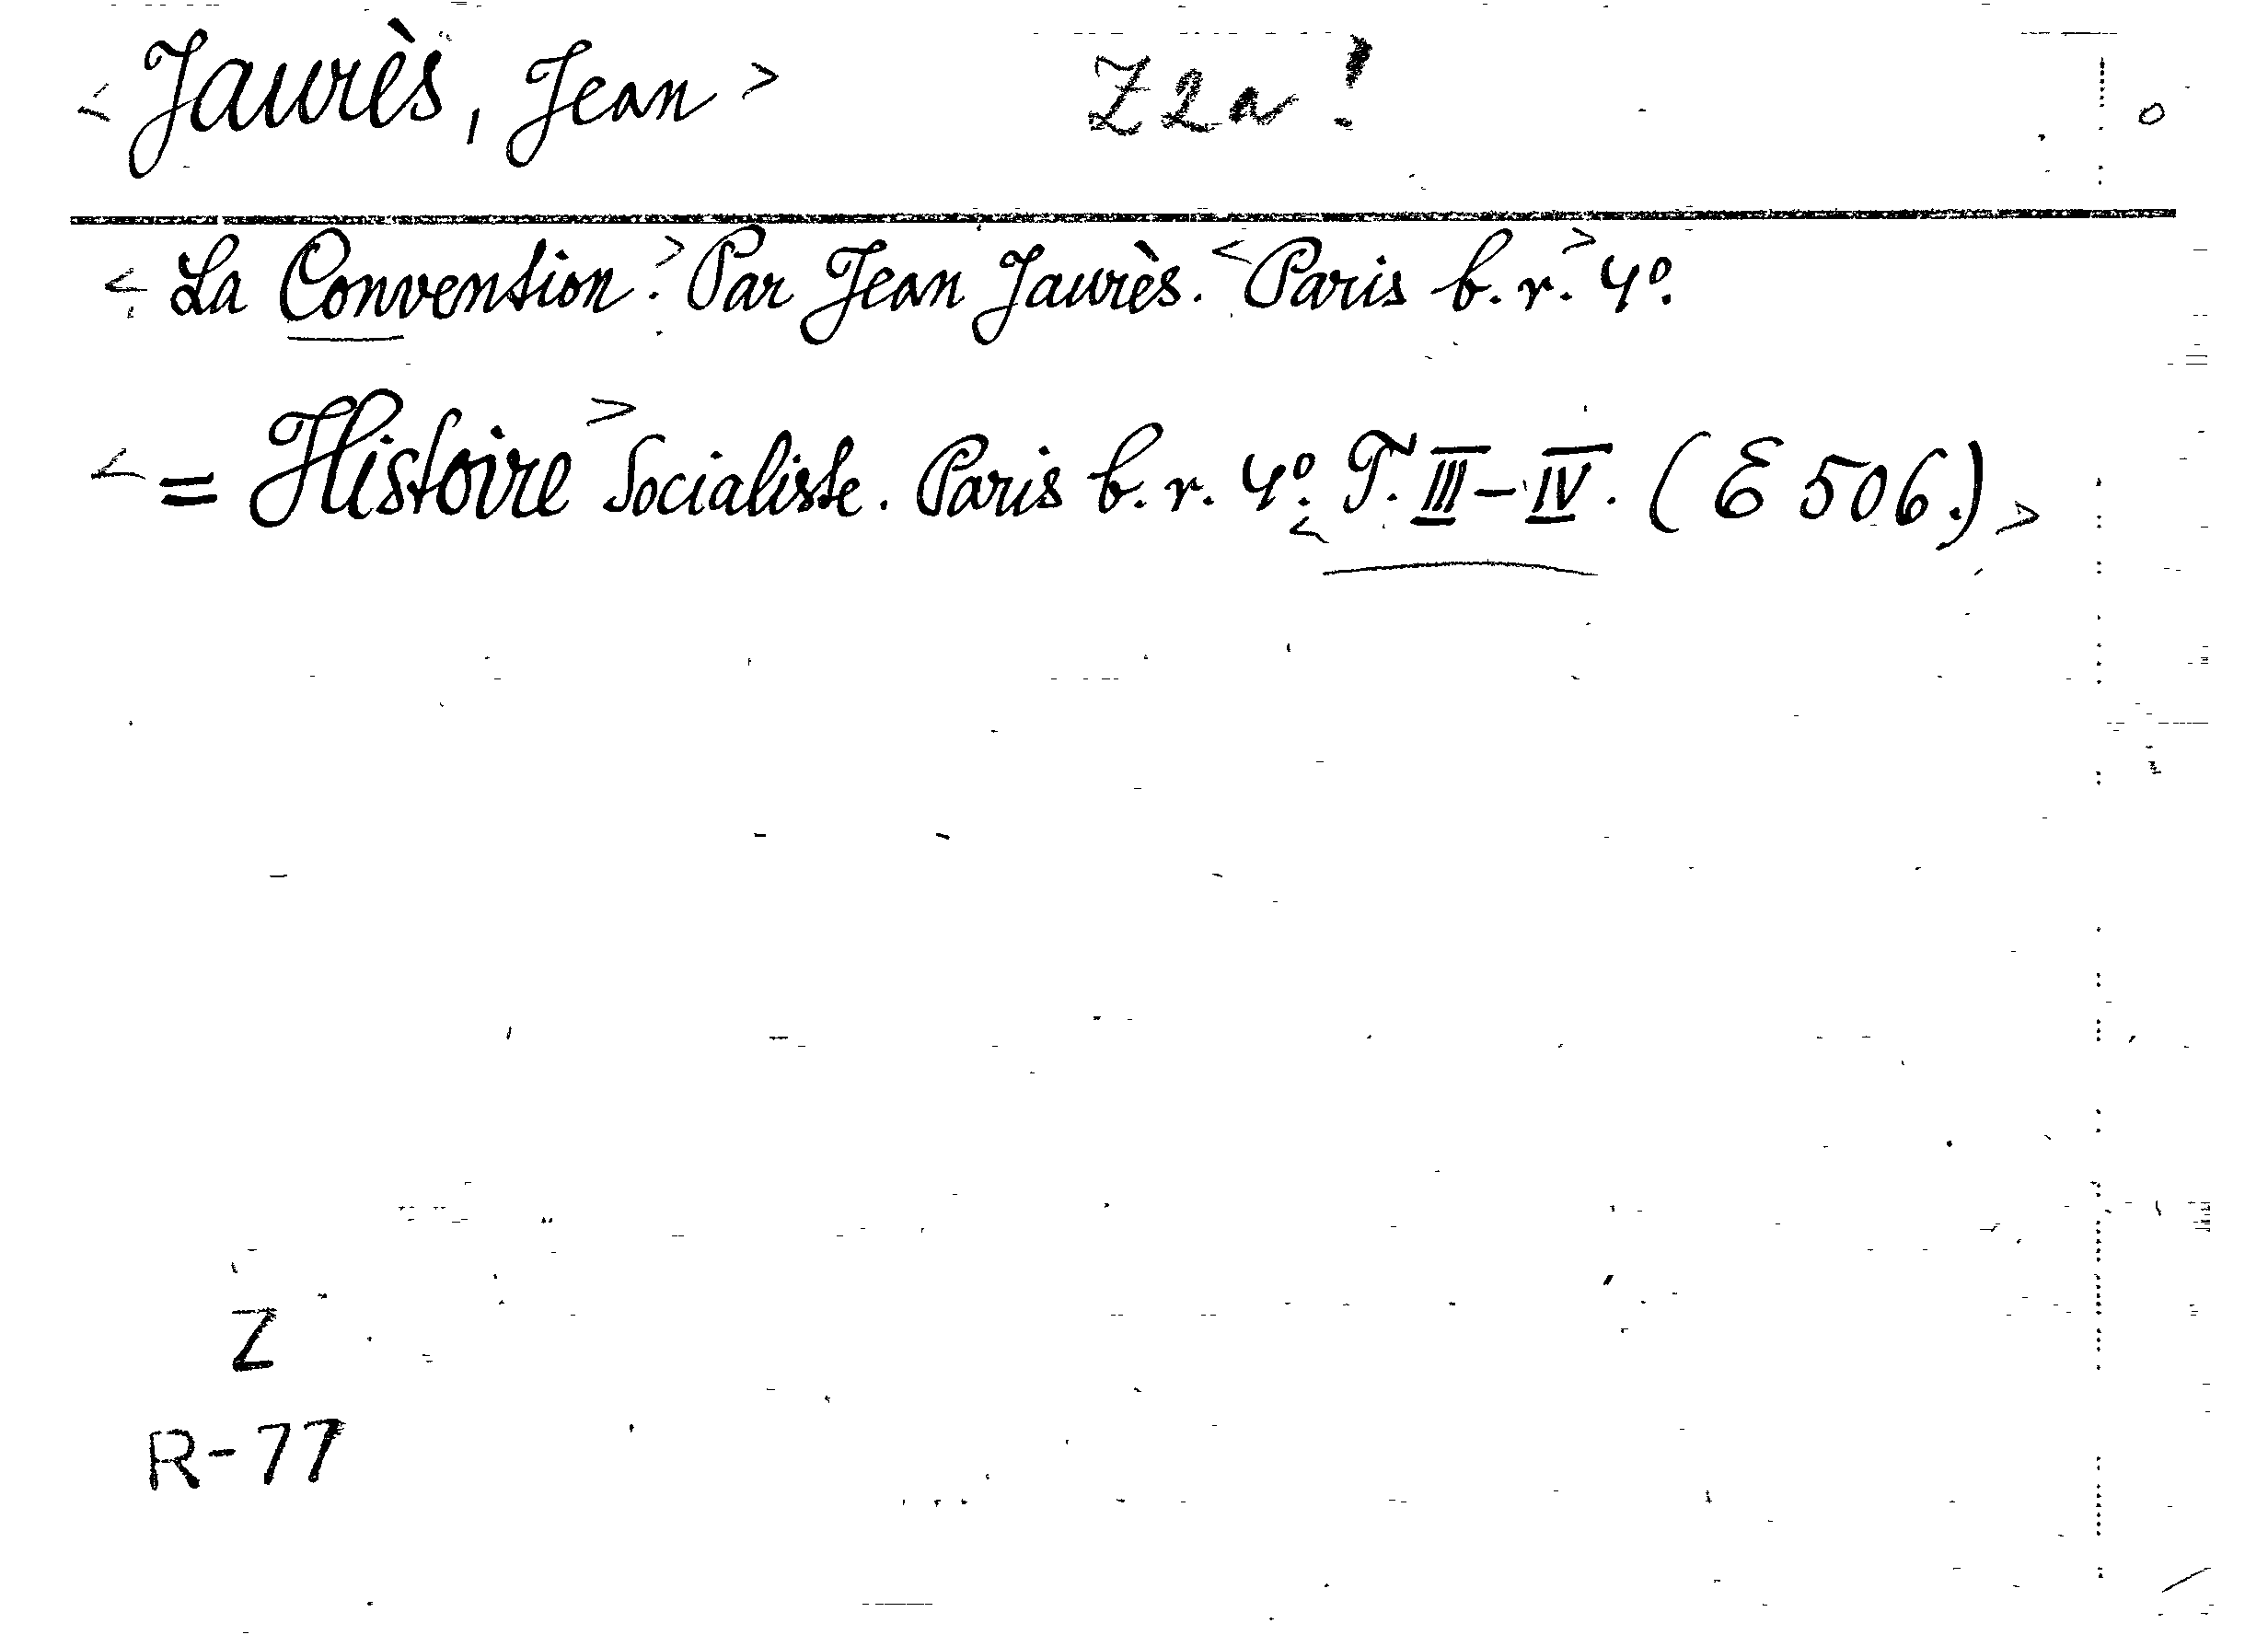 < Jaurès, Jean > Z2a!
< La Convention. > Par Jean Jaurès. < Paris b. r. > 4º.
< = Histoire > Socialiste. Paris b. r. 4º. < T. III–IV. (E 506.) >
Z
R-77